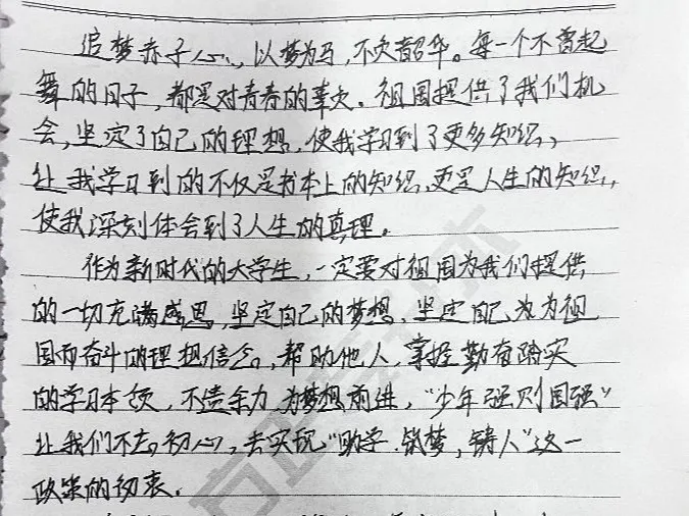 追梦赤子心,以梦为马,不负韶华。每一个不曾起
舞的日子,都是对青春的辜负。祖国提供了我们机
会,坚定了自己的理想,使我学习到了更多知识,
让我学习到的不仅是书本上的知识,更是人生的知识,
使我深刻体会到了人生的真理。
作为新时代的大学生,一定要对祖国为我们提供
的一切充满感恩,坚定自己的梦想,坚定自己为祖
国而奋斗的理想信念。帮助他人,掌握勤奋踏实
的学习本领,不遗余力为梦想前进,“少年强则国强”
让我们不忘初心,去实现“助学.筑梦,铸人”这一
政策的初衷.